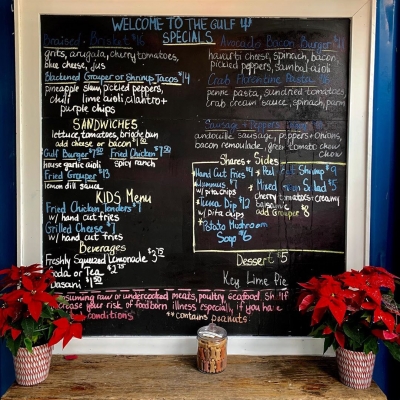 WELCOME TO THE GULF
SPECIALS
Braised Brisket $16
grits, arugula, cherry tomatoes,
blue cheese, jus
Blackened Grouper or Shrimp Tacos $14
pineapple slaw, pickled peppers,
chili lime aioli, cilantro +
purple chips
SANDWICHES
lettuce, tomatoes, bright bun
add cheese or bacon $1.50
Gulf Burger $7.50 Fried Chicken $7.50
house garlic aioli spicy ranch
Fried Grouper $13
lemon dill sauce
KIDS Menu
Fried Chicken Tenders $7
w/ hand cut fries
Grilled Cheese $7
w/ hand cut fries
Beverages
Freshly Squeezed Lemonade $3.75
Soda or Tea $2.75
Dasani $1.50
Avocado Bacon Burger
havarti cheese, spinach, bacon
pickled peppers, sambal aioli
Crab Florentine Pasta
penne pasta, sundried tomatoes
crab cream sauce, spinach, parm
Sausage + Peppers
andouille sausage, peppers + onions,
bacon remoulade, green tomato chow
chow
Shares + Sides
Hand Cut Fries
Hummus $7
w/ pita chips
Tuna Dip $12
w/ pita chips
Potato Mushroom
Soup $6
Peel Shrimp $9
Mixed Salad $5
cherry tomatoes + creamy
balsamic
add Grouper $8
Dessert $5
Key Lime Pie
consuming raw or undercooked meats, poultry, seafood,
increase your risk of foodborn illness especially if you have
conditions **contains peanuts